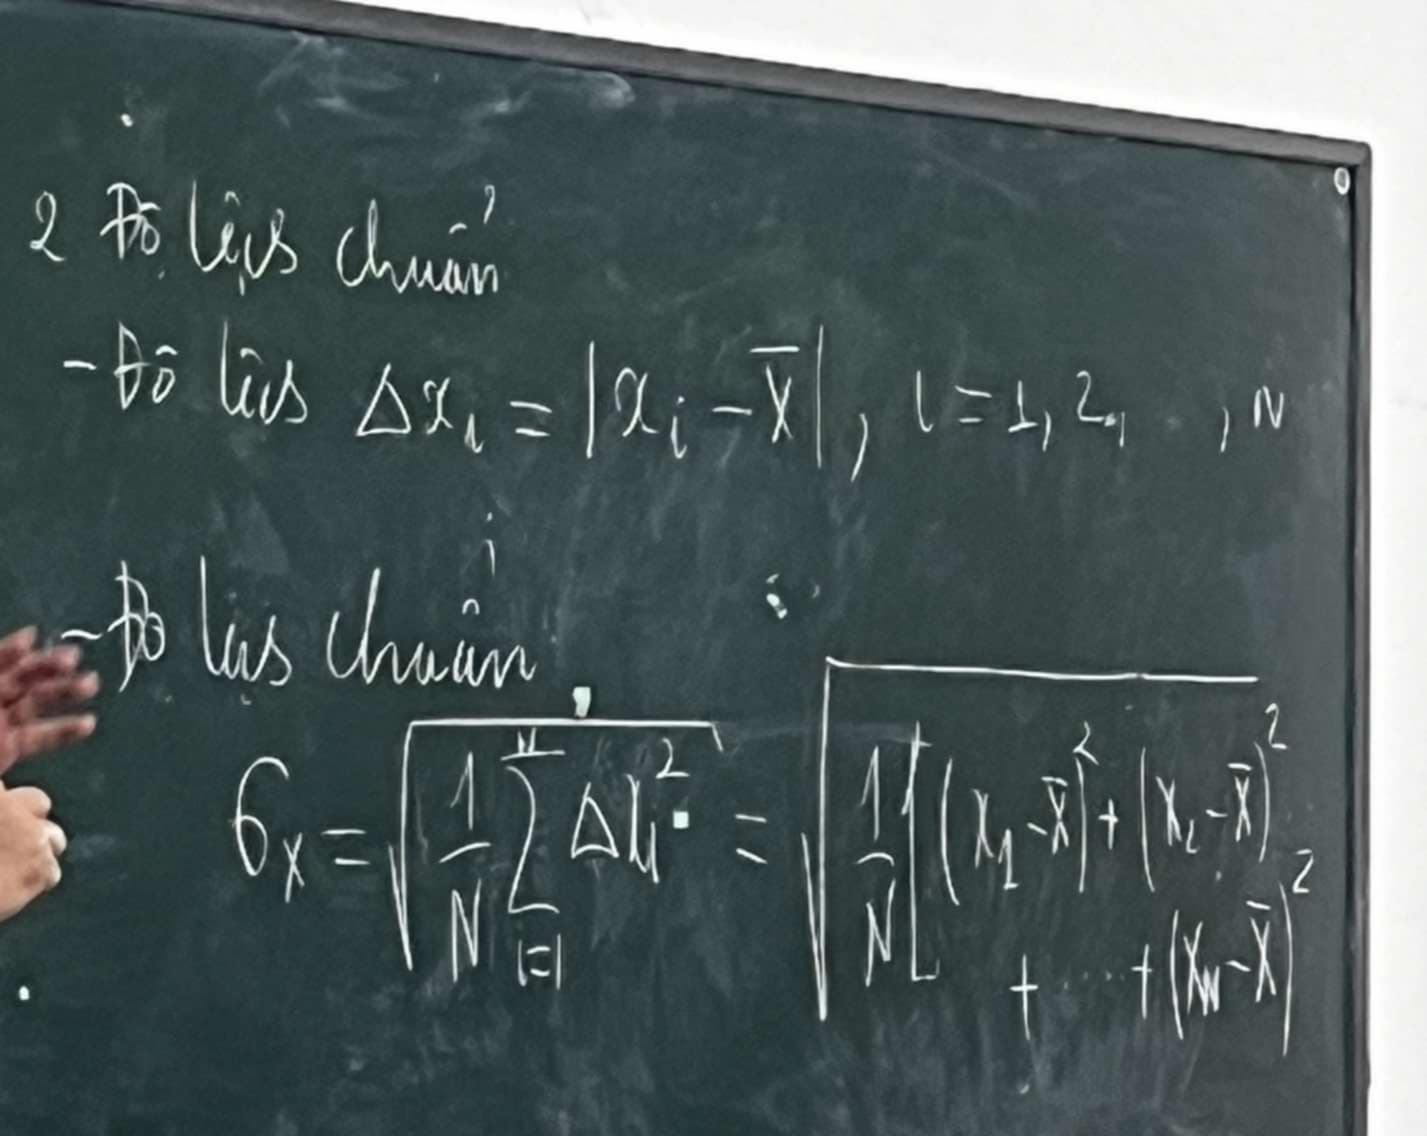 2 Độ lệch chuẩn
- Độ lệch Δxᵢ = |xᵢ - x̄|, i = 1, 2, . . , N
- Độ lệch chuẩn
σₓ = √(1/N ∑ᵢ₌₁ᴺ Δxᵢ²) = √(1/N [(x₁ - x̄)² + (x₂ - x̄)²
+ ... + (x_N - x̄)²